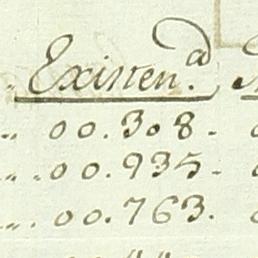 Existen.ᵃ
„ 00.308.
„ „ 00.935.
„ „ 00.763.